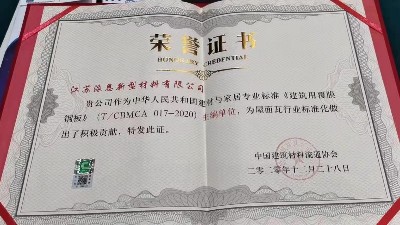 荣誉证书
HONORARY CREDENTIAL
江苏海恩新型材料有限公司
贵公司作为中华人民共和国建材与家居专业标准《建筑用覆膜
钢板》(T/CBMCA 017-2020)主编单位,为屋面瓦行业标准化做
出了积极贡献,特发此证。
中国建筑材料流通协会
二〇二〇年十二月二十八日